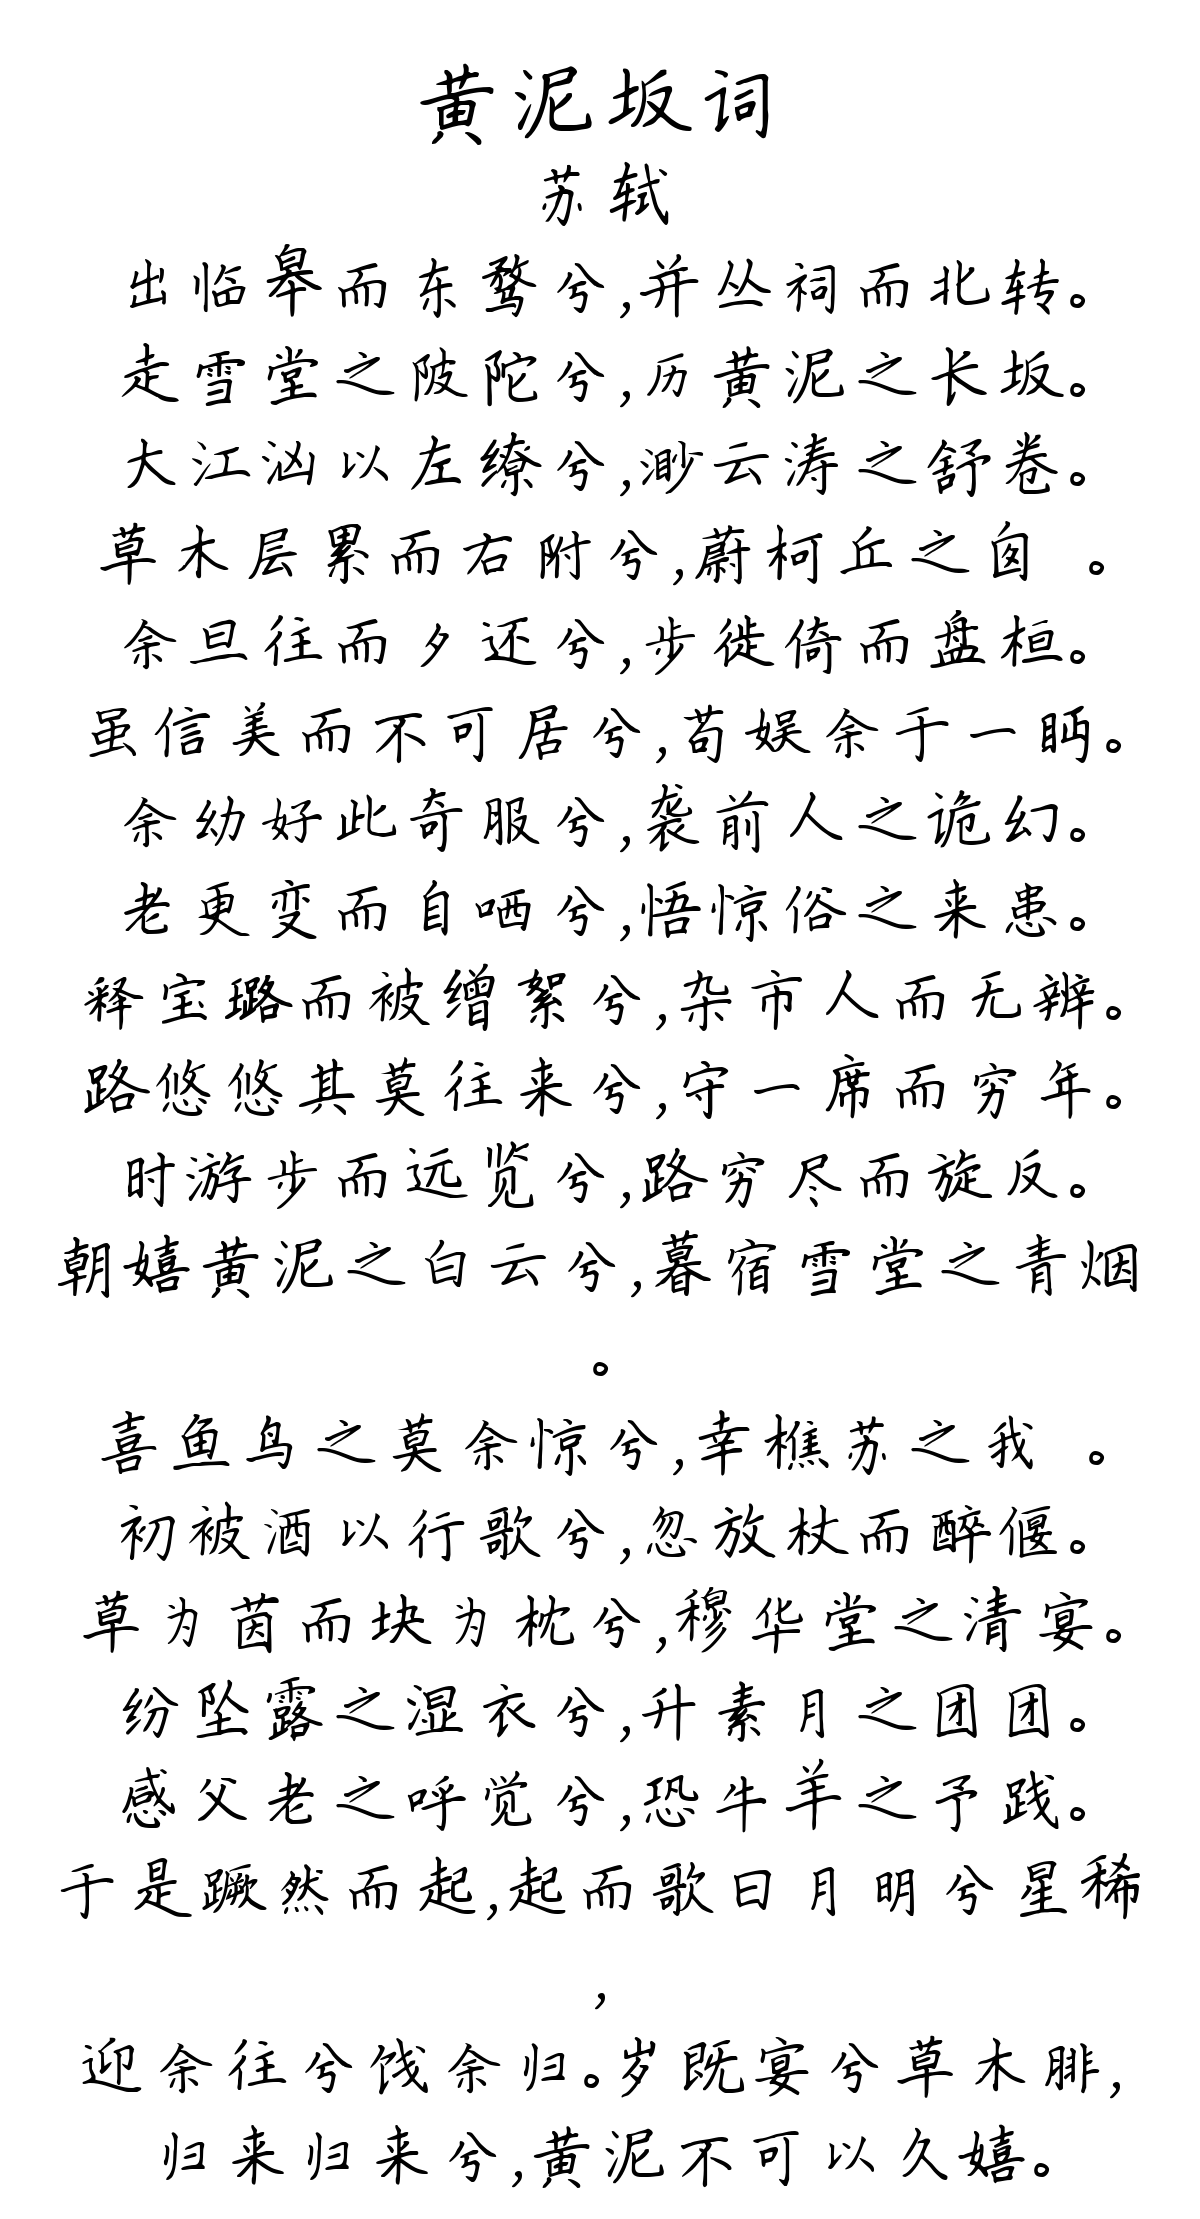 黄泥坂词
苏轼
出临皋而东鹜兮,并丛祠而北转。
走雪堂之陂陀兮,历黄泥之长坂。
大江汹以左缭兮,渺云涛之舒卷。
草木层累而右附兮,蔚柯丘之囱 。
余旦往而夕还兮,步徙倚而盘桓。
虽信美而不可居兮,苟娱余于一眄。
余幼好此奇服兮,袭前人之诡幻。
老更变而自哂兮,悟惊俗之来患。
释宝璐而被缯絮兮,杂市人而无辨。
路悠悠其莫往来兮,守一席而穷年。
时游步而远览兮,路穷尽而旋反。
朝嬉黄泥之白云兮,暮宿雪堂之青烟
。
喜鱼鸟之莫余惊兮,幸樵苏之我 。
初被酒以行歌兮,忽放杖而醉偃。
草为茵而块为枕兮,穆华堂之清宴。
纷坠露之湿衣兮,升素月之团团。
感父老之呼觉兮,恐牛羊之予践。
于是蹶然而起,起而歌曰月明兮星稀
,
迎余往兮饯余归。岁既宴兮草木腓,
归来归来兮,黄泥不可以久嬉。